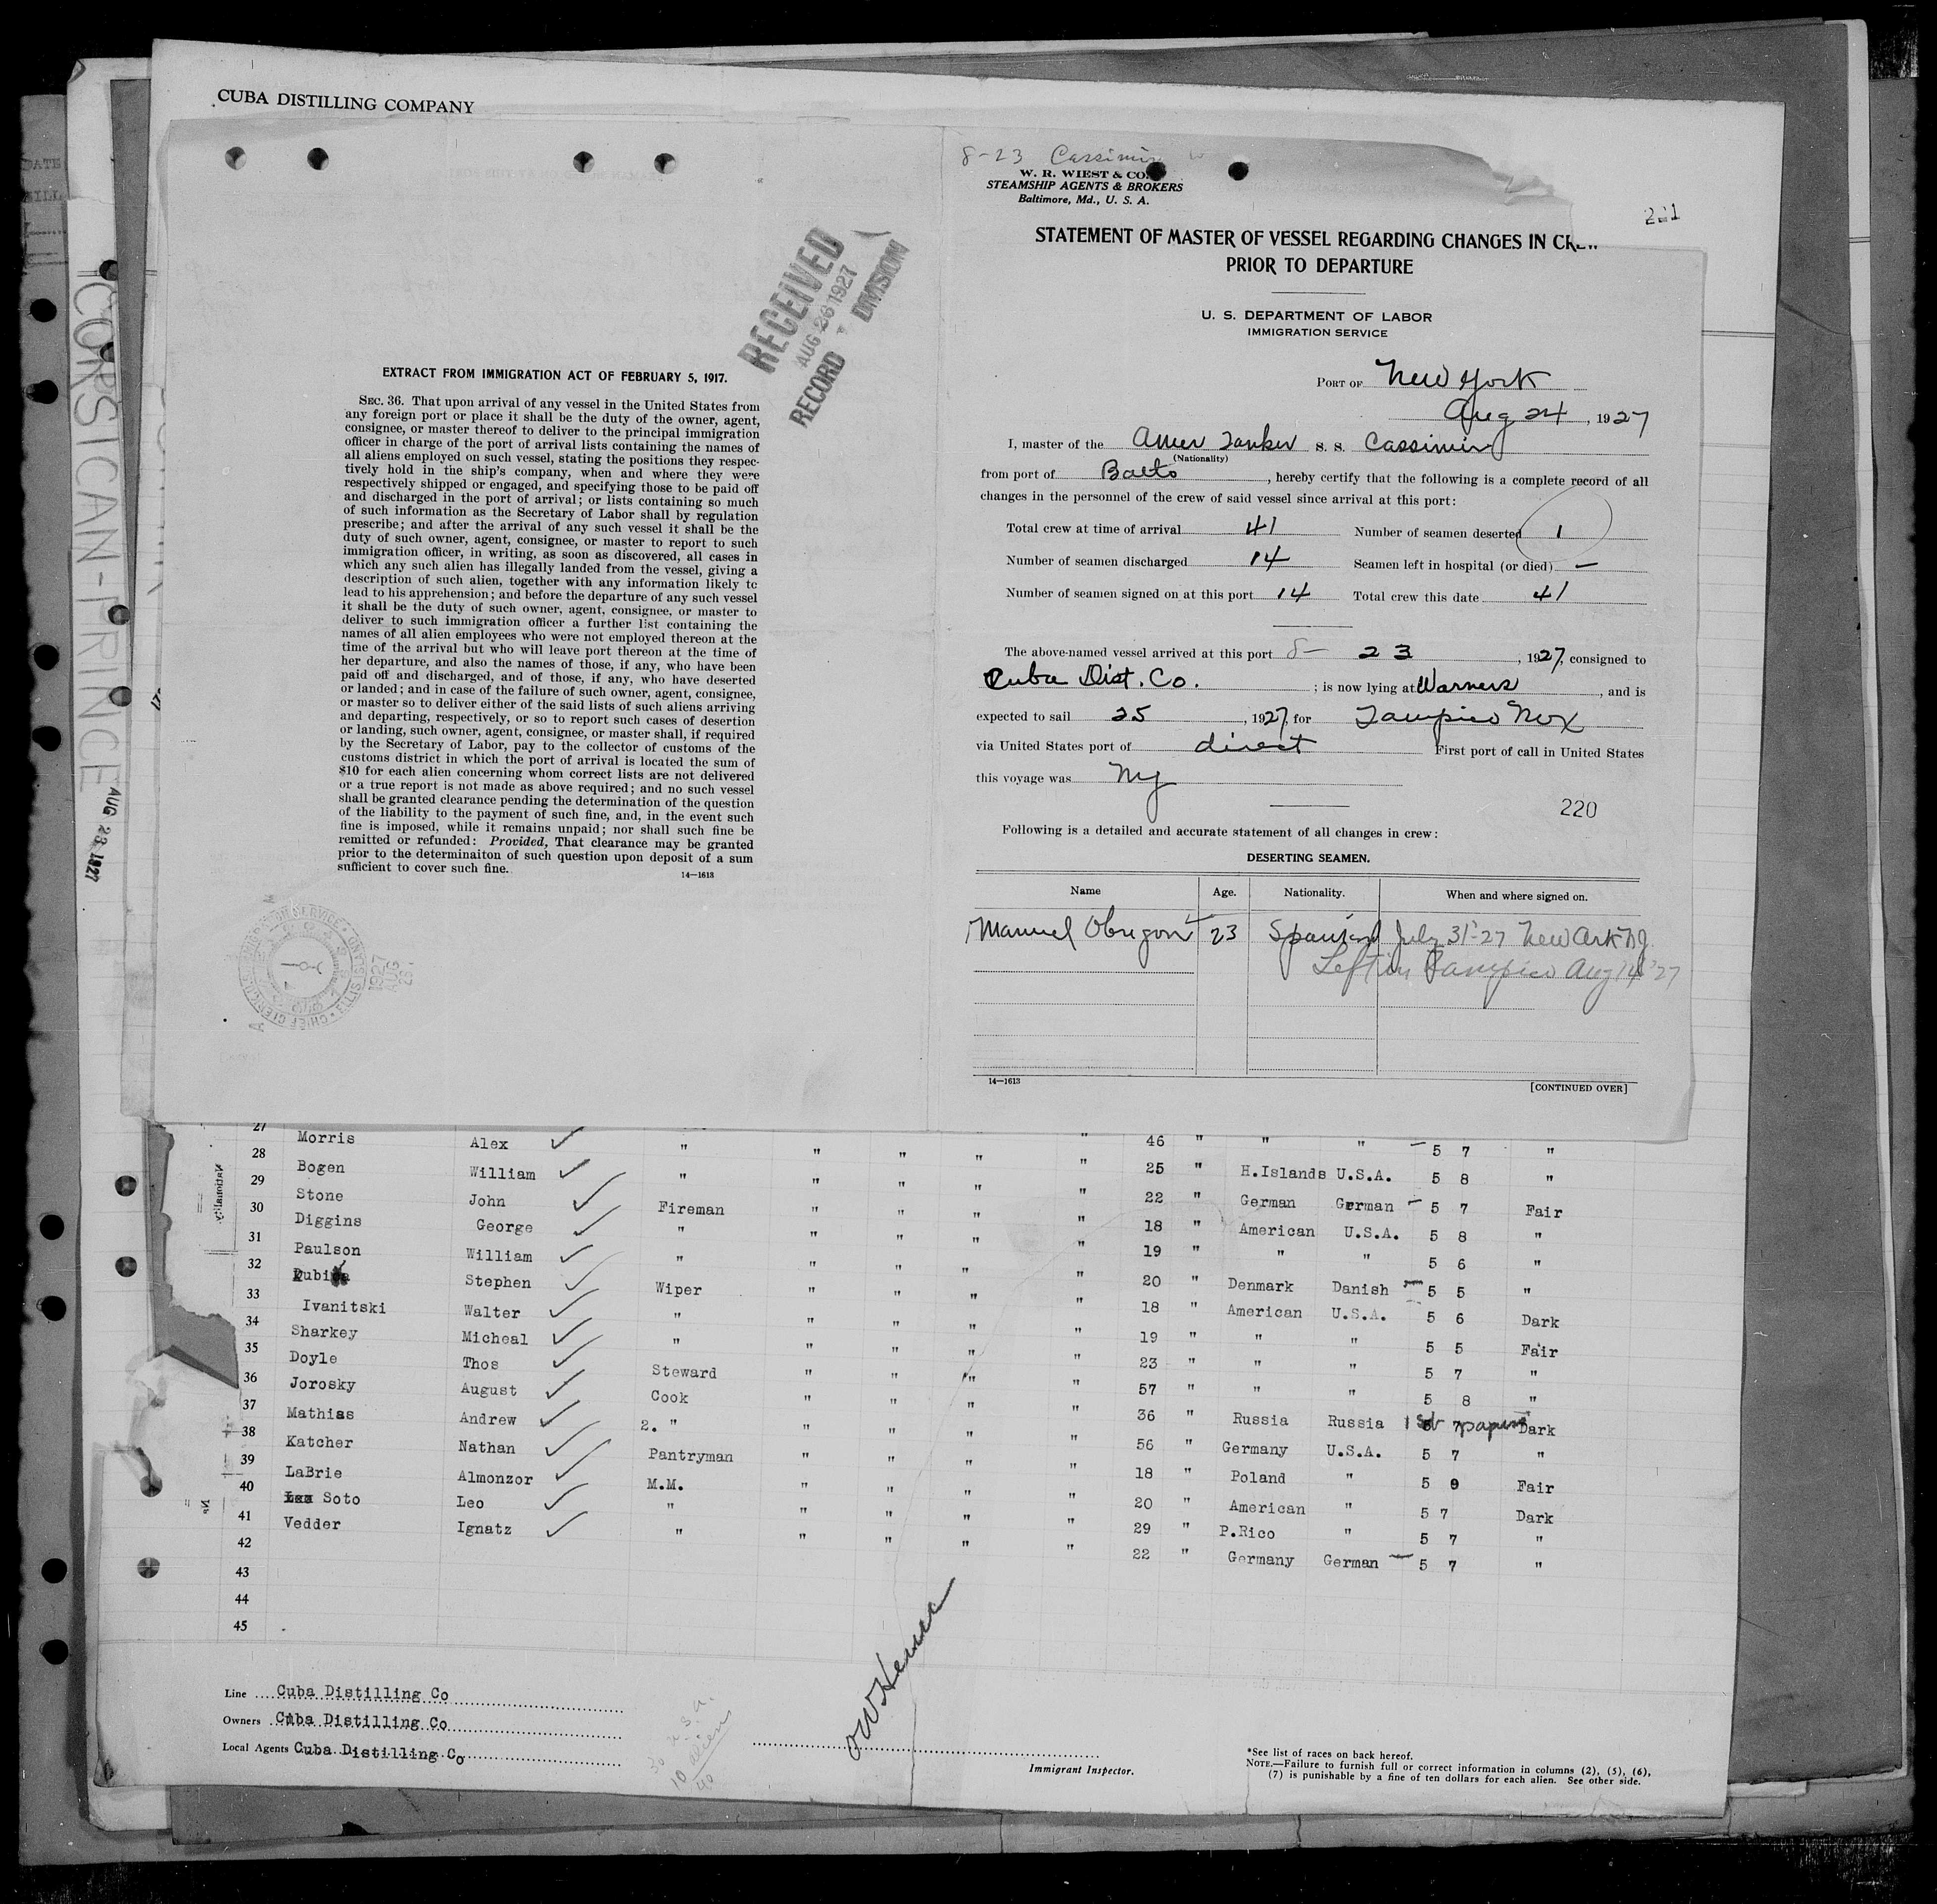 CUBA DISTILLING COMPANY
8-23 Cassimir
W. R. WIEST & CO.
STEAMSHIP AGENTS & BROKERS
Baltimore, Md., U. S. A.
221
STATEMENT OF MASTER OF VESSEL REGARDING CHANGES IN CREW
PRIOR TO DEPARTURE
U. S. DEPARTMENT OF LABOR
IMMIGRATION SERVICE
PORT OF New York
Aug 24, 1927
I, master of the Amer Tanker S. S. Cassimir
(Nationality)
from port of Balto, hereby certify that the following is a complete record of all
changes in the personnel of the crew of said vessel since arrival at this port:
Total crew at time of arrival 41 Number of seamen deserted 1
Number of seamen discharged 14 Seamen left in hospital (or died) —
Number of seamen signed on at this port 14 Total crew this date 41
The above-named vessel arrived at this port 8- 23, 1927, consigned to
Cuba Dist. Co. ; is now lying at Warners, and is
expected to sail 25, 1927, for Tampico Mex
via United States port of direct First port of call in United States
this voyage was NY
220
Following is a detailed and accurate statement of all changes in crew:
DESERTING SEAMEN.
Name Age. Nationality. When and where signed on.
Manuel Obregon 23 Spanish July 31-27 New Ark NJ
Left in Tampico Aug 14 '27
14—1613 [CONTINUED OVER]
RECEIVED
AUG 26 1927
RECORD DIVISION
EXTRACT FROM IMMIGRATION ACT OF FEBRUARY 5, 1917.
SEC. 36. That upon arrival of any vessel in the United States from
any foreign port or place it shall be the duty of the owner, agent,
consignee, or master thereof to deliver to the principal immigration
officer in charge of the port of arrival lists containing the names of
all aliens employed on such vessel, stating the positions they respec-
tively hold in the ship's company, when and where they were
respectively shipped or engaged, and specifying those to be paid off
and discharged in the port of arrival; or lists containing so much
of such information as the Secretary of Labor shall by regulation
prescribe; and after the arrival of any such vessel it shall be the
duty of such owner, agent, consignee, or master to report to such
immigration officer, in writing, as soon as discovered, all cases in
which any such alien has illegally landed from the vessel, giving a
description of such alien, together with any information likely to
lead to his apprehension; and before the departure of any such vessel
it shall be the duty of such owner, agent, consignee, or master to
deliver to such immigration officer a further list containing the
names of all alien employees who were not employed thereon at the
time of the arrival but who will leave port thereon at the time of
her departure, and also the names of those, if any, who have been
paid off and discharged, and of those, if any, who have deserted
or landed; and in case of the failure of such owner, agent, consignee,
or master so to deliver either of the said lists of such aliens arriving
and departing, respectively, or so to report such cases of desertion
or landing, such owner, agent, consignee, or master shall, if required
by the Secretary of Labor, pay to the collector of customs of the
customs district in which the port of arrival is located the sum of
$10 for each alien concerning whom correct lists are not delivered
or a true report is not made as above required; and no such vessel
shall be granted clearance pending the determination of the question
of the liability to the payment of such fine, and, in the event such
fine is imposed, while it remains unpaid; nor shall such fine be
remitted or refunded: Provided, That clearance may be granted
prior to the determinaiton of such question upon deposit of a sum
sufficient to cover such fine.
14—1613
CORSICAN-PRINCE
AUG 23 1927
27 Morris Alex " " " " " 46 " " " 5 7 "
28 Bogen William " " " " " 25 " H.Islands U.S.A. 5 8 "
29 Stone John Fireman " " " " 22 " German German 5 7 Fair
30 Diggins George " " " " " 18 " American U.S.A. 5 8 "
31 Paulson William " " " " " 19 " " " 5 6 "
32 Stephen Wiper " " " " 20 " Denmark Danish 5 5 "
33 Ivanitski Walter " " " " " 18 " American U.S.A. 5 6 Dark
34 Sharkey Micheal " " " " " 19 " " " 5 5 Fair
35 Doyle Thos Steward " " " " 23 " " " 5 7 "
36 Jorosky August Cook " " " " 57 " " " 5 8 "
37 Mathias Andrew 2. " " " " " 36 " Russia Russia 1st papers 7 Dark
38 Katcher Nathan Pantryman " " " " 56 " Germany U.S.A. 5 7 "
39 LaBrie Almonzor M.M. " " " " 18 " Poland " 5 9 Fair
40 Soto Leo " " " " " 20 " American " 5 7 Dark
41 Vedder Ignatz " " " " " 29 " P.Rico " 5 7 "
42 22 " Germany German 5 7 "
43
44
45
Line Cuba Distilling Co
Owners Cuba Distilling Co
Local Agents Cuba Distilling Co
30 U.S.A.
10 alien
40
Immigrant Inspector.
*See list of races on back hereof.
NOTE.—Failure to furnish full or correct information in columns (2), (5), (6),
(7) is punishable by a fine of ten dollars for each alien. See other side.